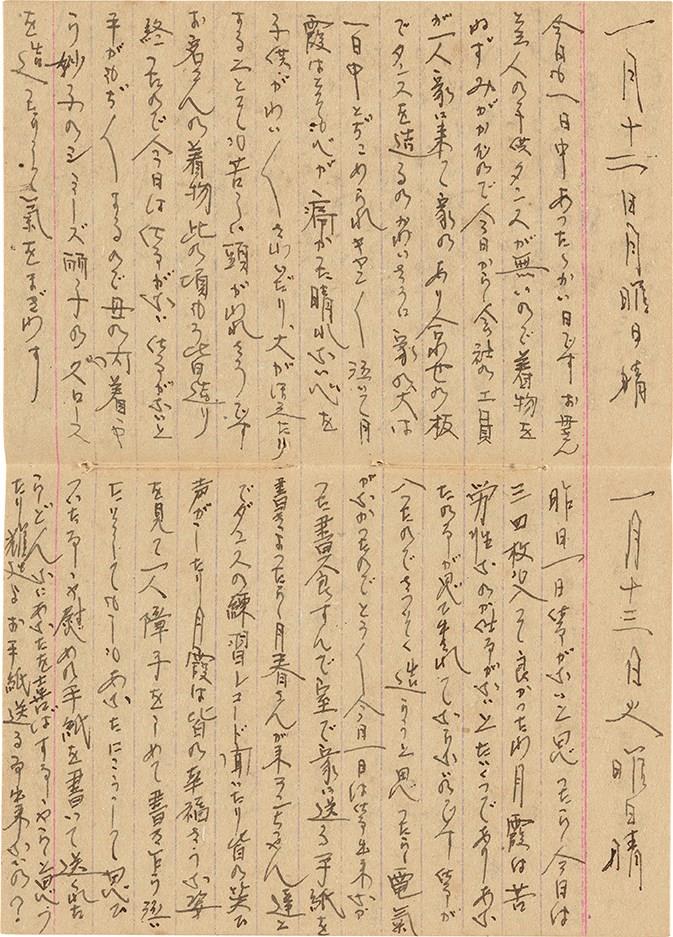 一月十二日月曜日晴
今日も一日中あったかい日です お母さん
主人の子供タンスが無いので着物を
ねずみがかぢるので今日から会社の工員
が一人家に来て家のあり合わせの板
でタンスを造るのかわいそうに家の犬は
一日中とぢこめられキャン〱泣いて月
霞はとても心が痛かった晴れない心を
子供がわい〱さわいだり、犬がほえたり
することとても苦しい頭がわれそうです
お客さんの着物此の頃もう皆造り
終ったので今日は仕事がない 仕事がないと
手がもぢ〱するので母の刃着や
ら妙子のシミーズ 丽子のズロース
を造ったりして氣をまぎわす
一月十三日火曜日晴
昨日一日仕事がないと思ったら今日は
三四枚入って良かったわ 月霞は苦
労性なのか仕事がないとたいくつでありあな
たの事が思い出されてならないのです 仕事が
入ったのでさっそく造ろうと思ったら電氣
がなかったのでとう〱今日一日は仕事出来なか
った 晝食すんで室で家に送る手紙を
書き
でダンスの練習レコード聞いたり皆の笑ひ
声がしたり 月霞は皆の幸福そうな姿
を見て一人障子をしめて書き乍ら泣い
たりしてもしもあなたにこうして思ひ
ついたら 慰めの手紙を書いて送れた
らどんなにあなたを喜ばするやらと思う
たり 耀廷よお手紙送る事出来ないの？